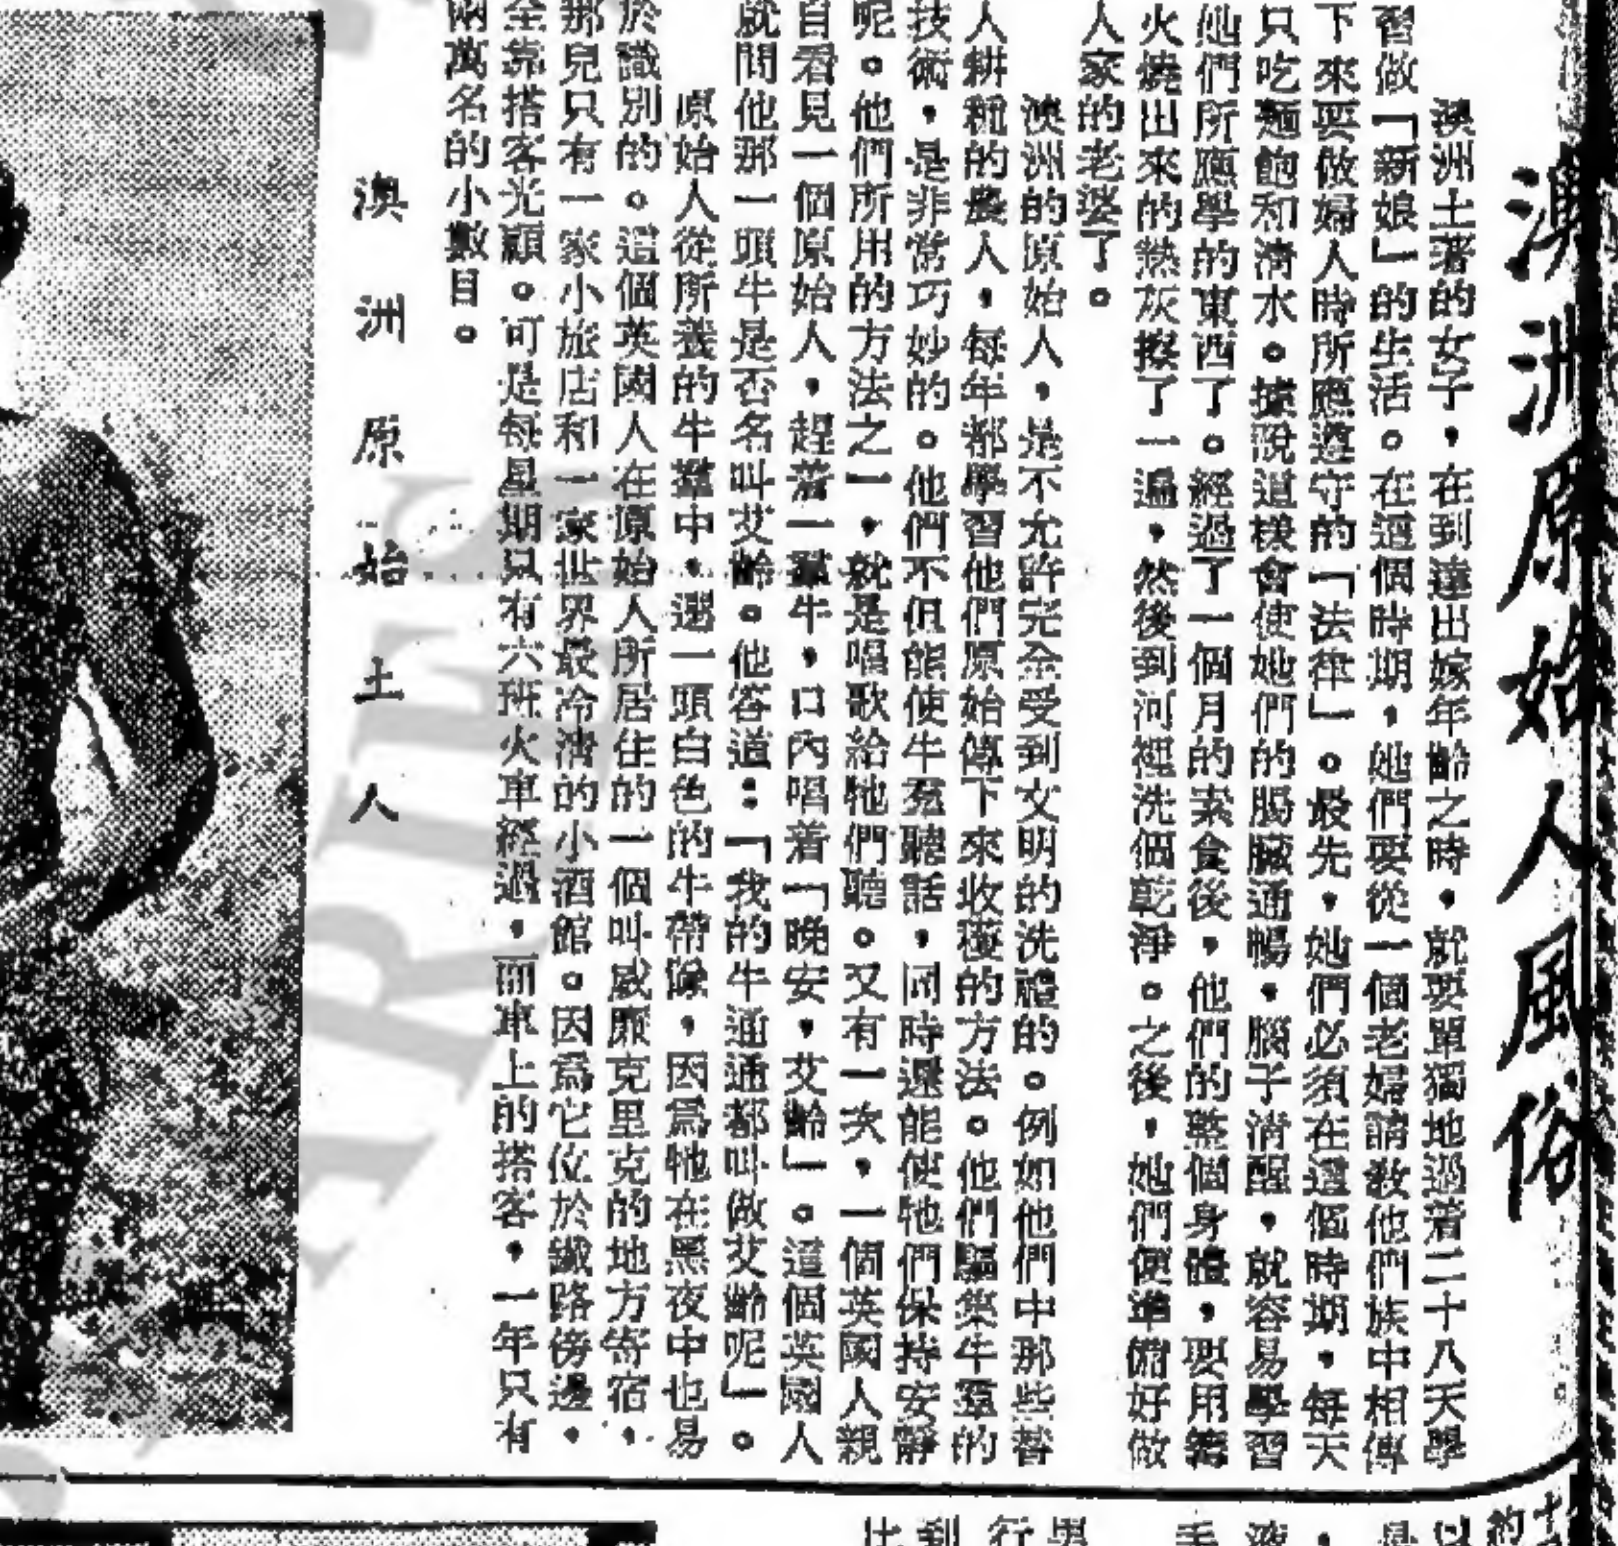 澳洲原始人風俗
澳洲土著的女子，在到達出嫁年齡之時，就要單獨地過着二十八天學
習做「新娘」的生活。在這個時期，她們要從一個老婦請教他們族中相傳
下來要做婦人時所應遵守的「法律」。最先，她們必須在這個時期，每天
只吃麵飽和清水。據說這樣會使她們的腸臟通暢，腦子清醒，就容易學習
她們所應學的東西了。經過了一個月的素食後，他們的整個身體，要用篝
火燒出來的熱灰擦了一遍，然後到河裡洗個乾淨。之後，她們便準備好做
人家的老婆了。
澳洲的原始人，是不允許完全受到文明的洗禮的。例如他們中那些替
人耕種的農人，每年都學習他們原始傳下來收穫的方法。他們驅集牛羣的
技術，是非常巧妙的。他們不但能使牛羣聽話，同時還能使牠們保持安靜
呢。他們所用的方法之一，就是唱歌給牠們聽。又有一次，一個英國人親
自看見一個原始人，趕着一羣牛，口內唱着「晚安，艾齡」。這個英國人
就問他那一頭牛是否名叫艾齡。他答道：「我的牛通通都叫做艾齡呢」。
原始人從所養的牛羣中，選一頭白色的牛帶隊，因爲牠在黑夜中也易
於識別的。這個英國人在原始人所居住的一個叫威廉克里克的地方寄宿，
那兒只有一家小旅店和一家世界最冷清的小酒館。因爲它位於鐵路傍邊，
全靠搭客光顧。可是每星期只有六班火車經過，而車上的搭客，一年只有
兩萬名的小數目。
澳洲原始土人
ARTES